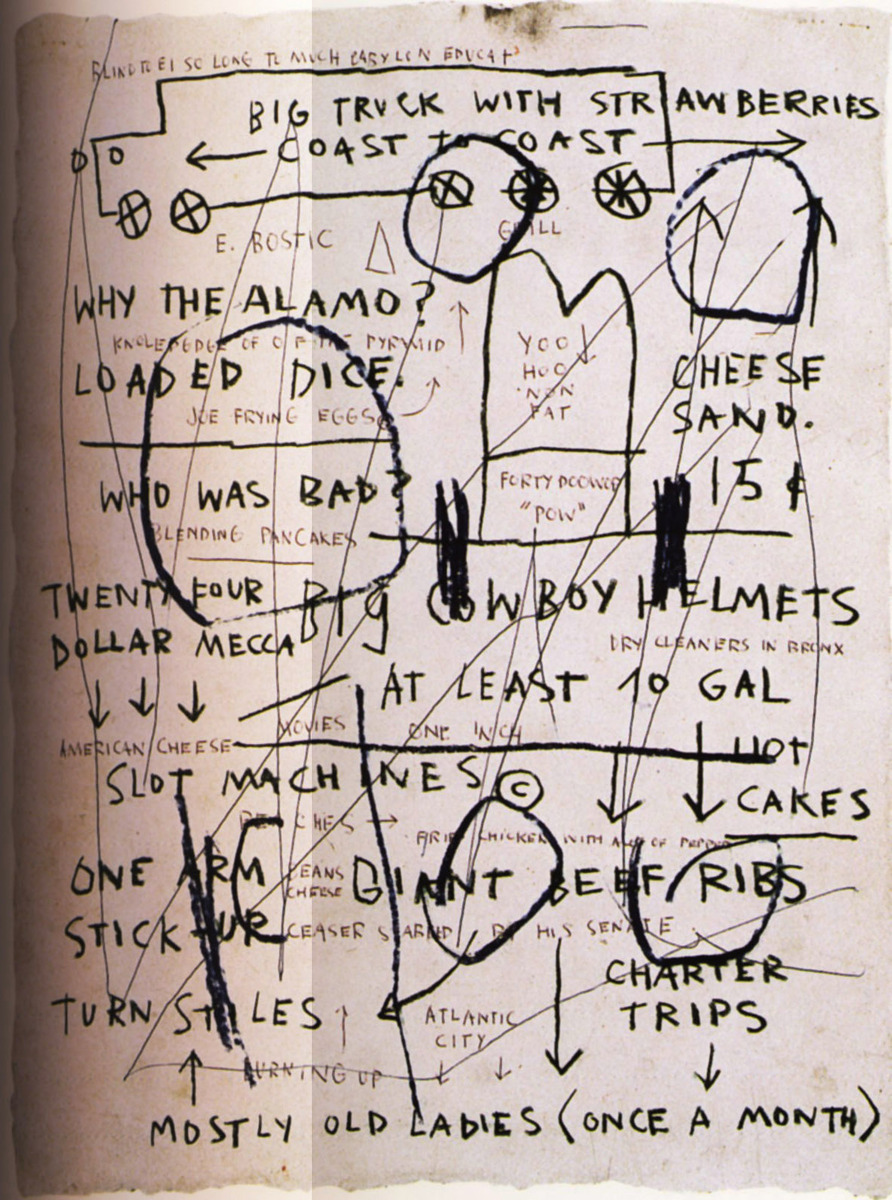 BLIND TO EI SO LONG TO MUCH BABYLON EDUCAT
BIG TRUCK WITH STRAWBERRIES
COAST to COAST
E. BOSTIC
GRILL
WHY THE ALAMO?
KNOLEDEDGE OF PYRAMID
LOADED DICE.
JOE FRYING EGGS
YOO
HOO
'NON
FAT
CHEESE
SAND.
15 ¢
WHO WAS BAD?
FORTY DOOWOP
"POW"
BLENDING PANCAKES
TWENTY FOUR
DOLLAR MECCA
BIG COWBOY HELMETS
DRY CLEANERS IN BRONX
AT LEAST 10 GAL
MOVIES
ONE INCH
AMERICAN CHEESE
HOT
CAKES
SLOT MACHINES ©
CHICKEN WITH
ONE ARM
BEANS
CHEESE
GIANT BEEF RIBS
STICK-UP
CEASER STABBED BY HIS SENATE
CHARTER
TRIPS
TURN STILES
ATLANTIC
CITY
BURNING UP
MOSTLY OLD LADIES (ONCE A MONTH)